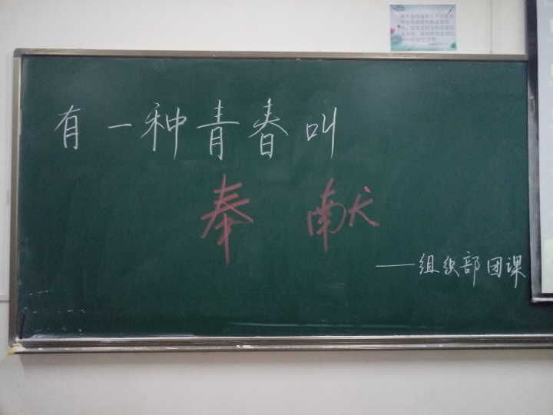 有一种青春叫
奉献
——组织部团课